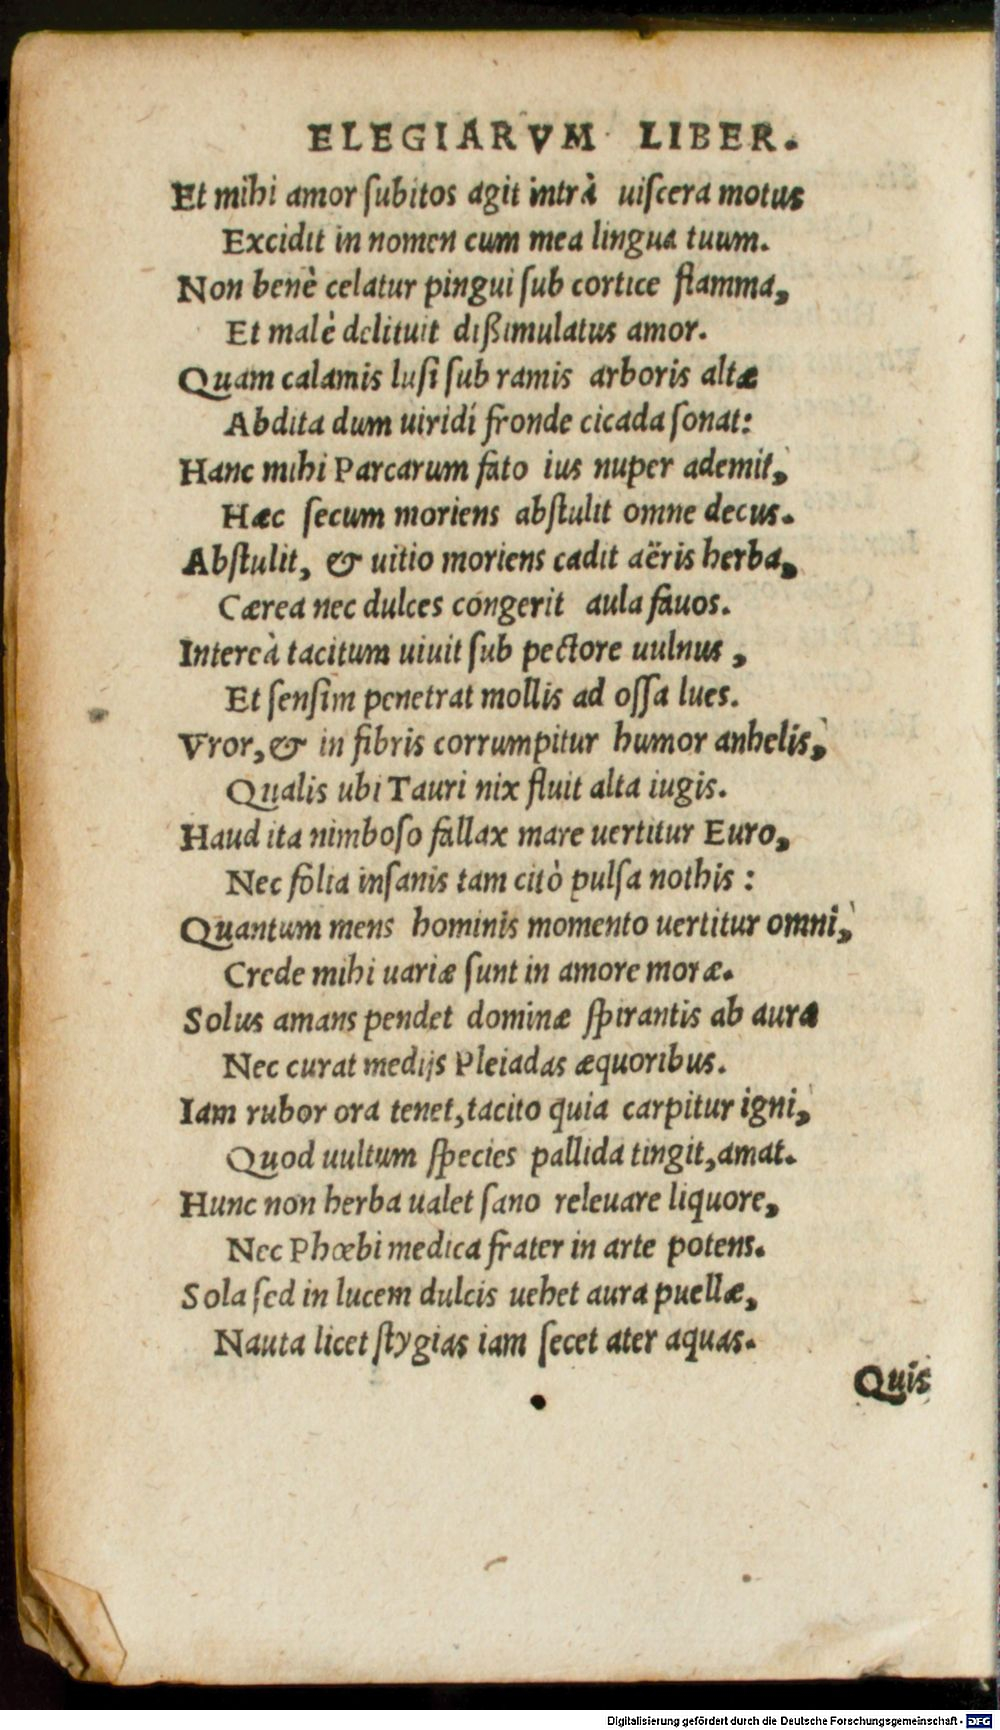 ELEGIARVM LIBER.
Et mihi amor ſubitos agit intrà uiſcera motus
Excidit in nomen cum mea lingua tuum.
Non benè celatur pingui ſub cortice flamma,
Et malè delituit dißimulatus amor.
Quam calamis luſi ſub ramis arboris altæ
Abdita dum uiridi fronde cicada ſonat:
Hanc mihi Parcarum fato ius nuper ademit,
Hæc ſecum moriens abſtulit omne decus.
Abſtulit, & uitio moriens cadit aëris herba,
Cærea nec dulces congerit aula fauos.
Intereà tacitum uiuit ſub pectore uulnus,
Et ſenſim penetrat mollis ad oſſa lues.
Vror, & in fibris corrumpitur humor anhelis,
Qualis ubi Tauri nix fluit alta iugis.
Haud ita nimboſo fallax mare uertitur Euro,
Nec folia inſanis tam citò pulſa nothis:
Quantum mens hominis momento uertitur omni,
Crede mihi uariæ ſunt in amore moræ.
Solus amans pendet dominæ ſpirantis ab aura
Nec curat medijs Pleiadas æquoribus.
Iam rubor ora tenet, tacito quia carpitur igni,
Quod uultum ſpecies pallida tingit, amat.
Hunc non herba ualet ſano releuare liquore,
Nec Phœbi medica frater in arte potens.
Sola ſed in lucem dulcis uehet aura puellæ,
Nauta licet ſtygias iam ſecet ater aquas.
Quis
Digitalisierung gefördert durch die Deutsche Forschungsgemeinschaft - DFG